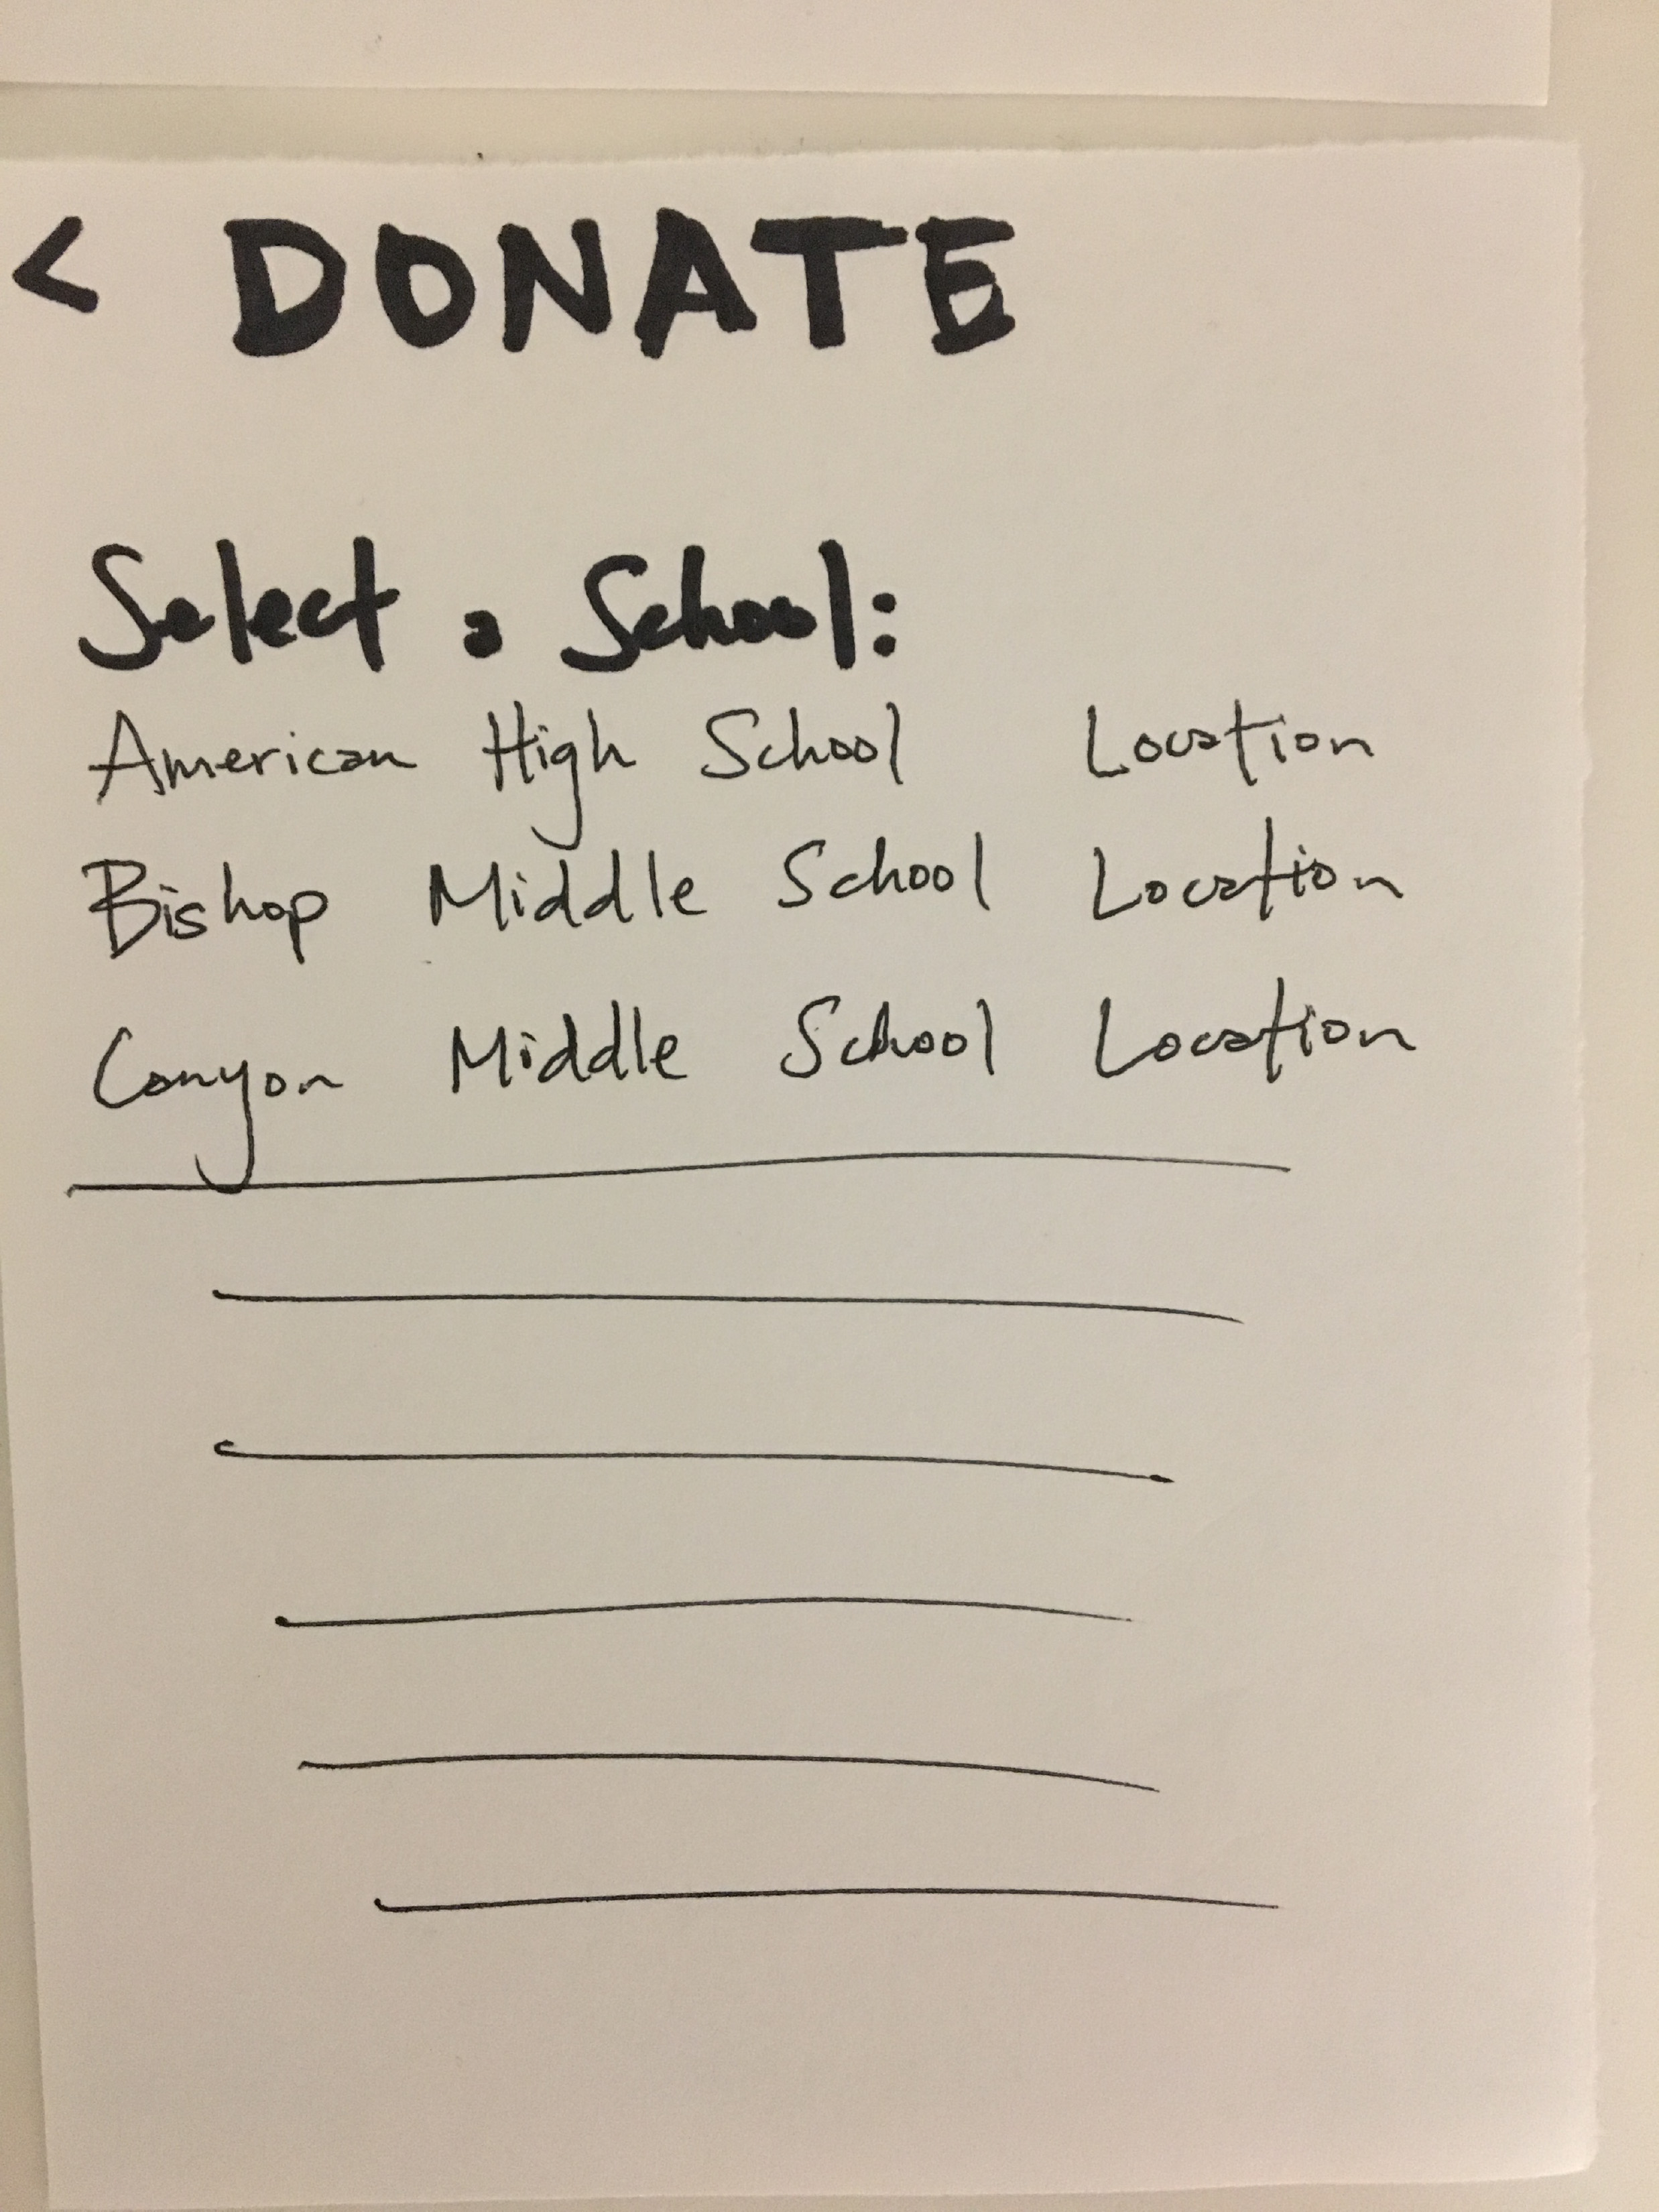 < DONATE
Select a School:
American High School Location
Bishop Middle School Location
Canyon Middle School Location